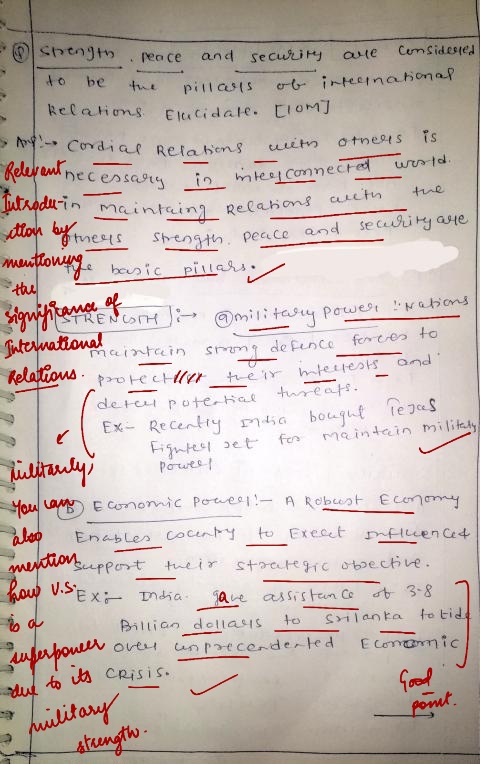 Q Strength, peace and security are considered
to be the pillars of international
Relations. Elucidate. [10M]
Ans:→ Cordial Relations with others is
necessary in interconnected world.
in maintaing Relations with the
others strength, peace and security are
the basic pillars.
Relevant
Introdu-
ction by
mentioning
the
significance of
International
Relations.
STRENGTH :→ a military power :- Nations
maintain strong defence forces to
protect their interests and
deter potential threats.
Ex:- Recently India bought Tejas
Fighter Jet for maintain military
power
b Economic Power!- A Robust Economy
Enables country to Exert influence &
support their strategic objective.
Ex:- India. gave assistance of 3.8
Billian dollars to srilanka to tide
over unprecendented Economic
crisis.
Militarily,
You can
also
mention
how U.S.
is a
superpower
due to its
military
strength.
Good
point.